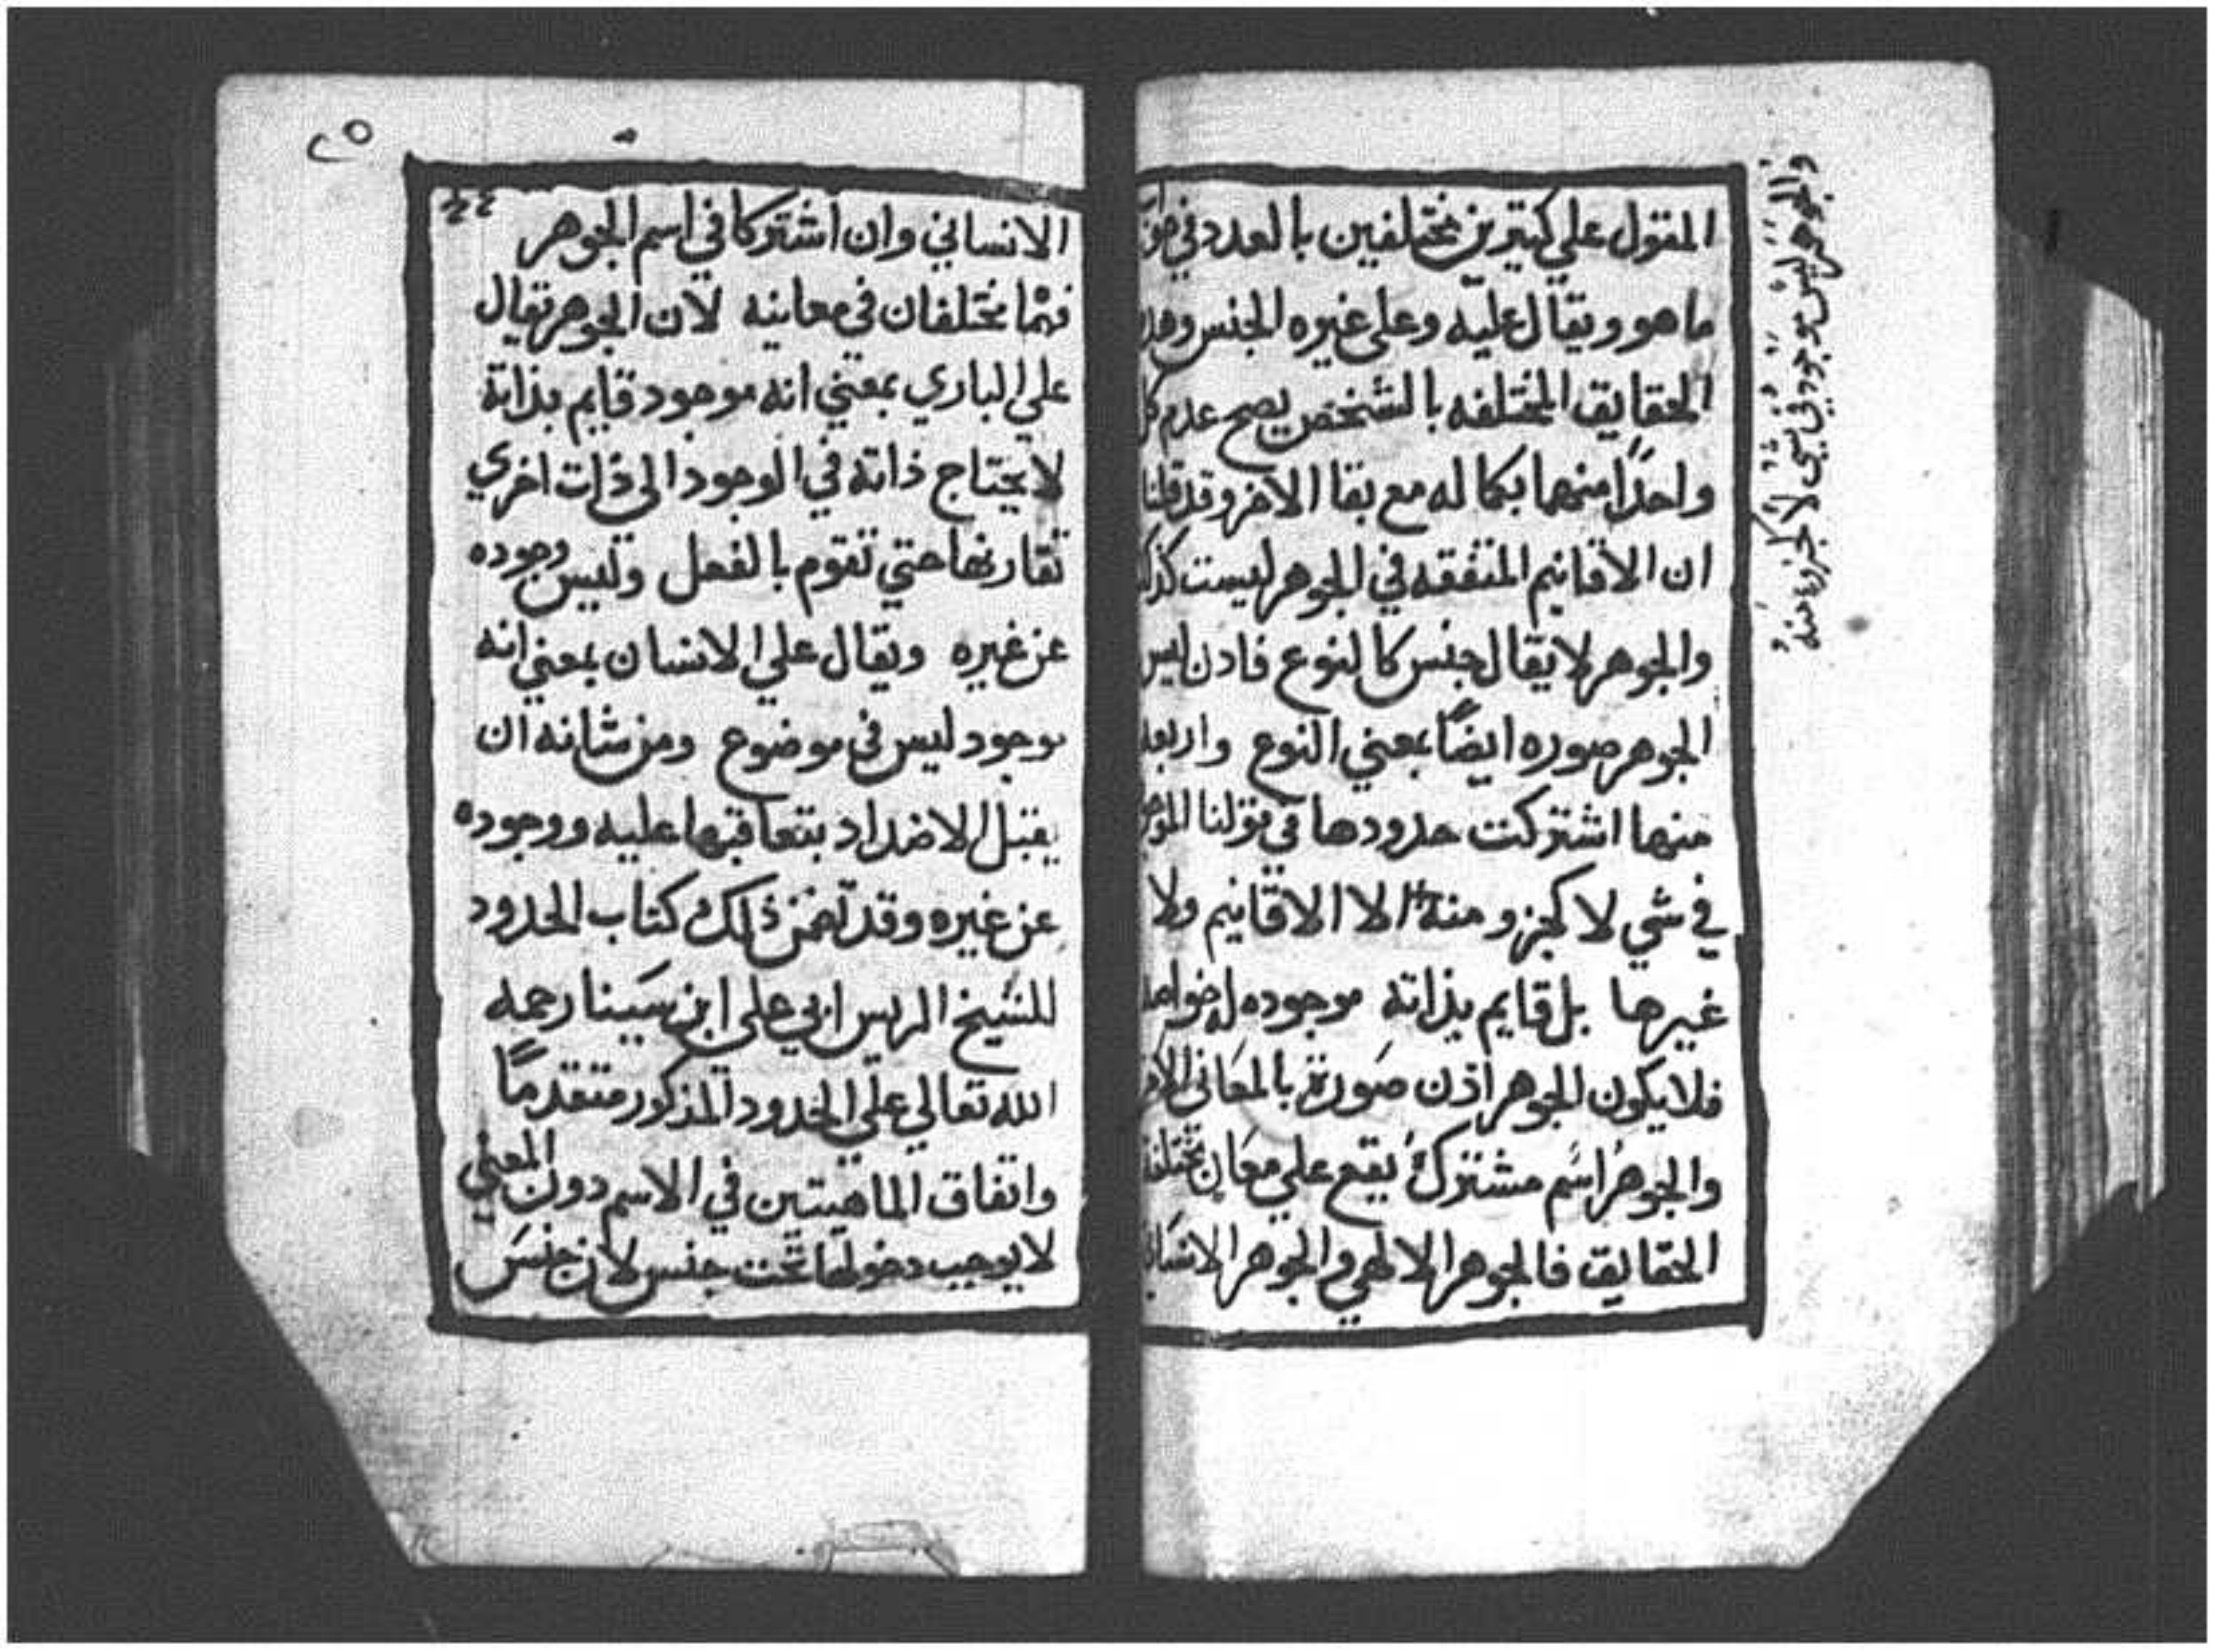 المقول علي كتيرين مختلفين بالعدد في
ما هو ويقال عليه وعلي غيره الجنس
الحقايق المختلفه بالشخص يصح عدم
واحدًا منهما بكماله مع بقا الاخر وقد قلنا
ان الاقانيم المتفقه في الجوهر ليست
والجوهر لا يقال جنس كالنوع فادن ليس
الجوهر صوره ايضًا بمعني النوع
منها اشتركت حدودها في قولنا
في شي لا كجزو منه الا الاقانيم ولا
غيرها بل قايم بذاته موجوده
فلا يكون الجوهر اذن صورة بالمعاني
والجوهر اسم مشترك يقع علي معان
الحقايق فالجوهر الالهي والجوهر
والجوهر ليس موجود في شي لا كجزء منه
٢٥
الانساني وان اشتركا في اسم الجوهر
فهما مختلفان في معانيه لان الجوهر يقال
علي الباري بمعني انه موجود قايم بذاته
لا يحتاج ذاته في الوجود الي ذات اخري
تقارنها حتي تقوم بالفعل وليس وجوده
عن غيره ويقال علي الانسان بمعني انه
موجود ليس في موضوع ومن شانه ان
يقبل الاضداد بتعاقبها عليه ووجوده
عن غيره وقد تضمن ذلك كتاب الحدود
للشيخ الريس ابي علي ابن سينا رحمه
الله تعالي علي الحدود المذكور متقدمًا
واتفاق الماهيتين في الاسم دون المعني
لا يوجب دخولهما تحت جنس لان جنس